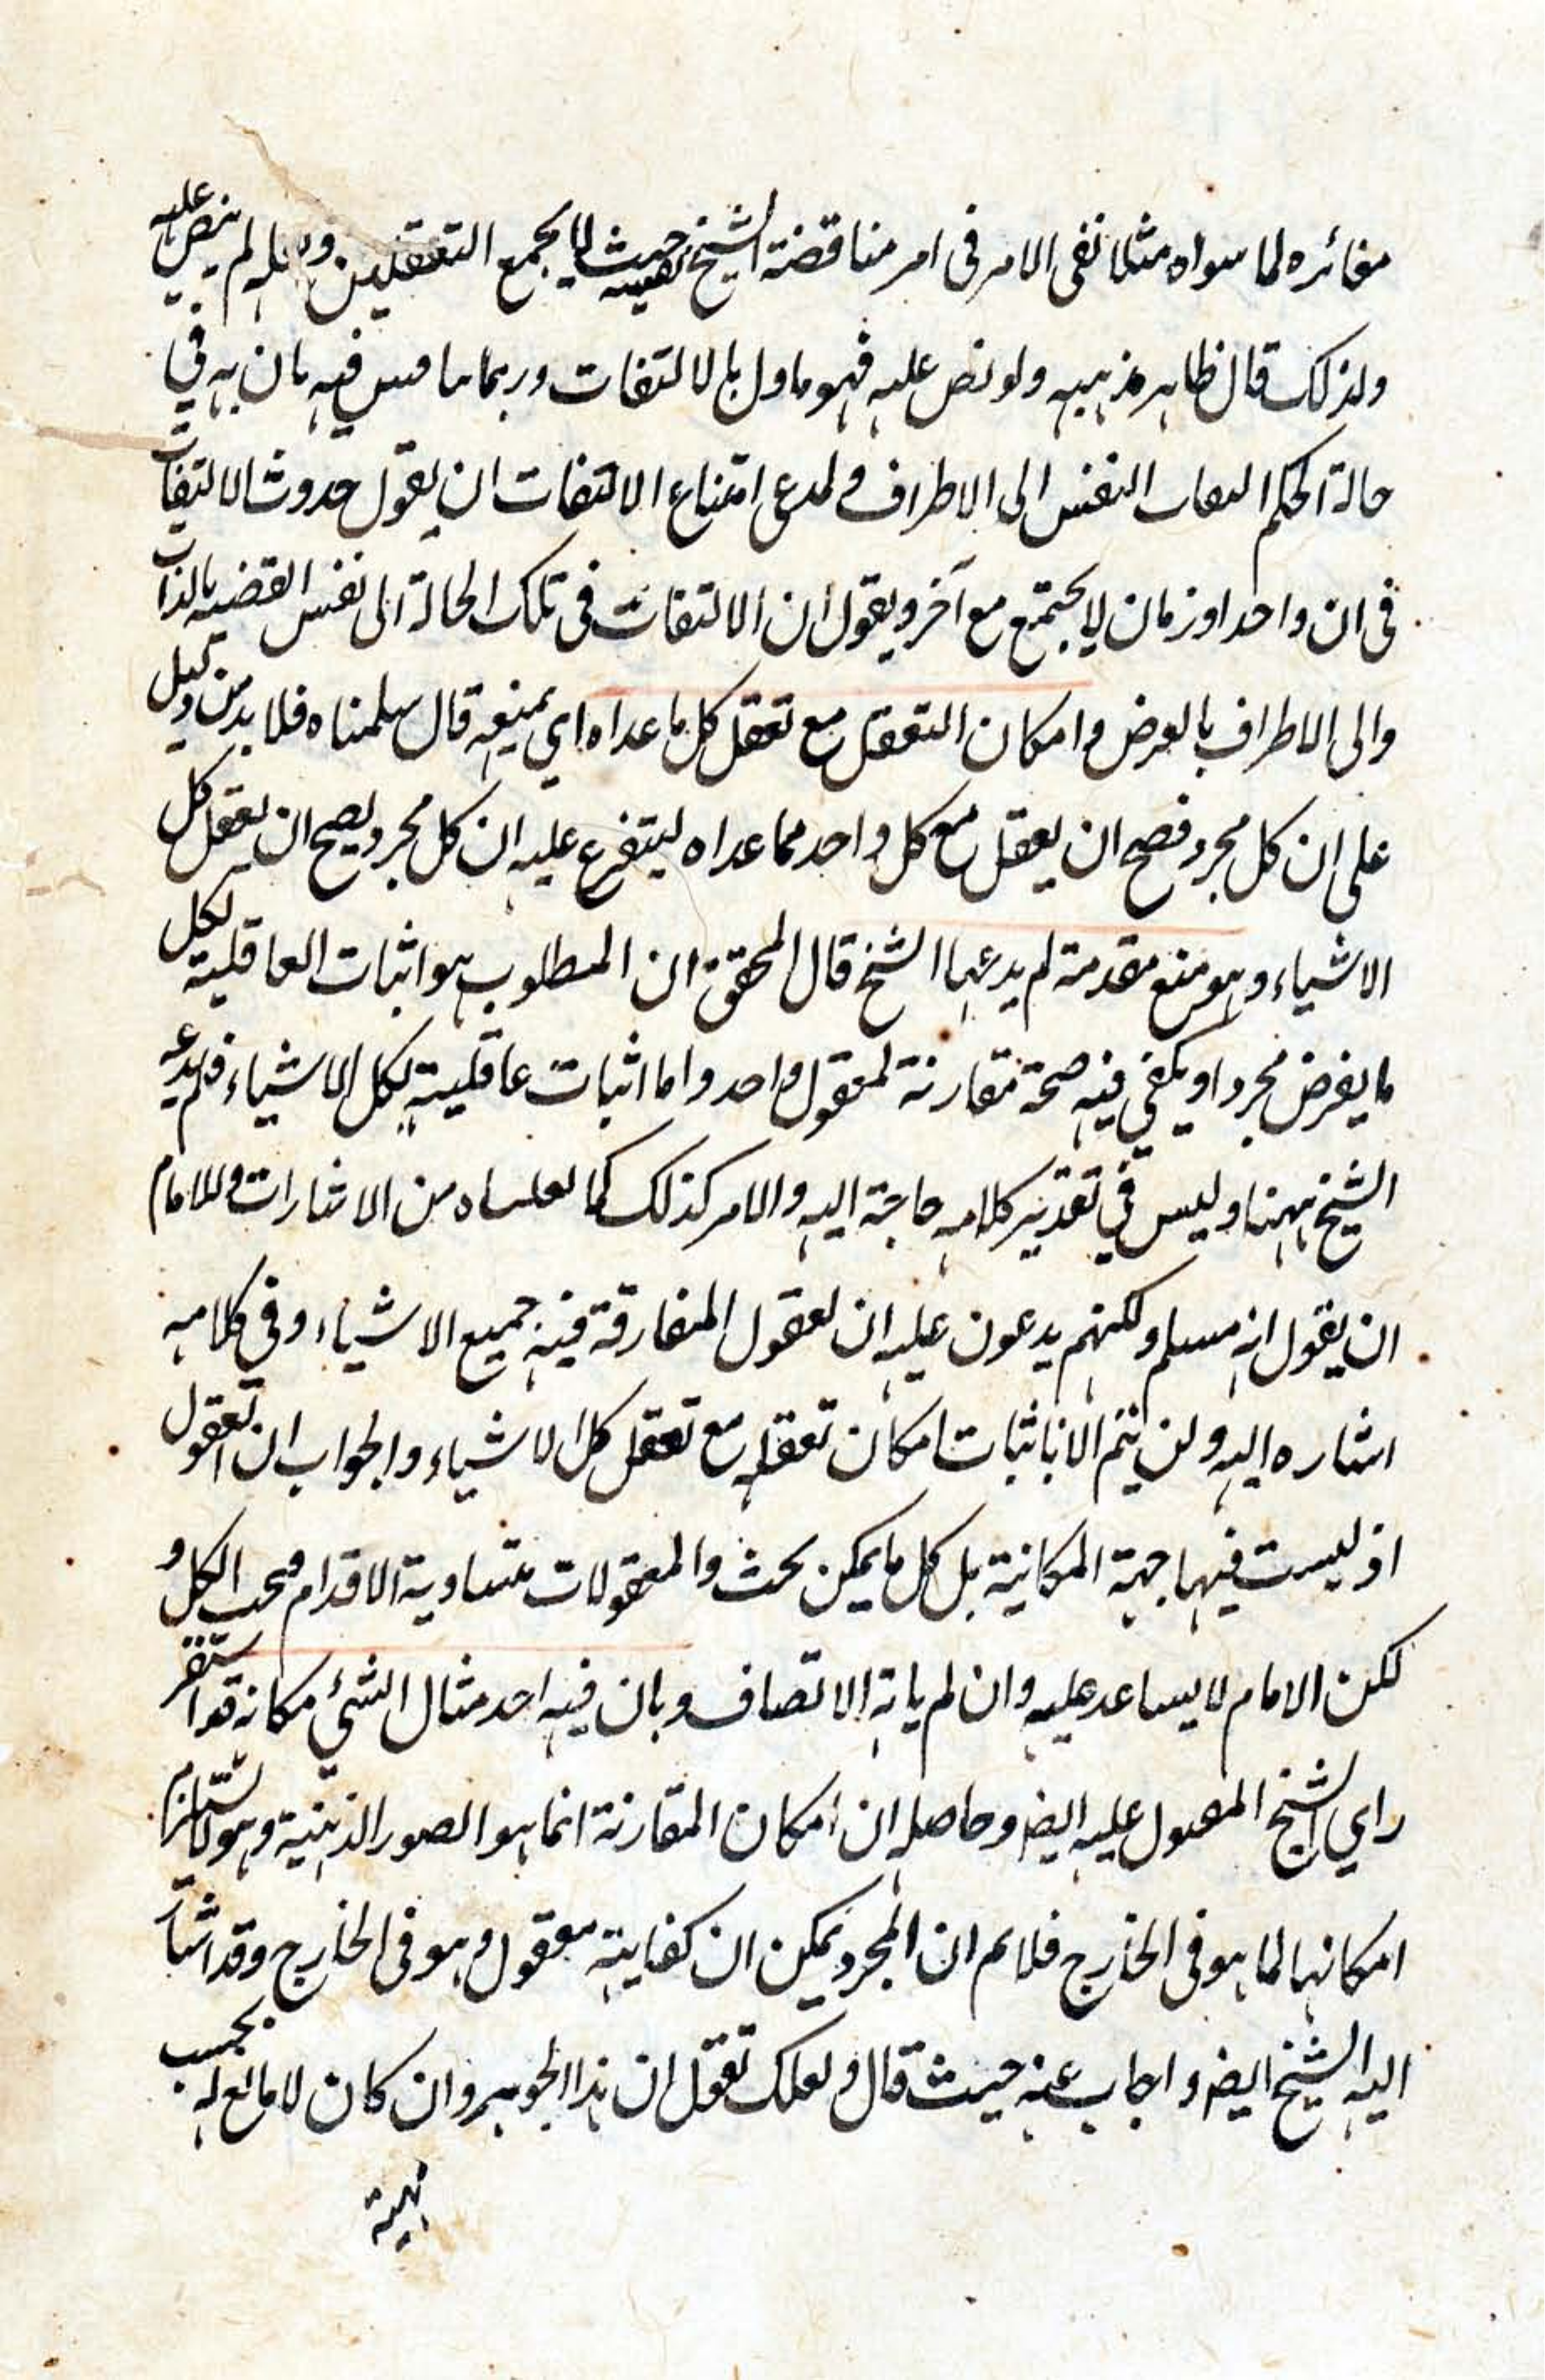 مغائره لما سواه مثلا نفى الامر فى امر مناقضة الشيخ نفسه حيث لا يجمع التعقلين ولعله لم ينص عليه
ولذلك قال ظاهر مذهبه ولو نص عليه فهو ماول بالالتفات وربما يناقش فيه بان به في
حالة الحكم التفات النفس الى الاطراف ولمدعى امتناع الالتفات ان يقول حدوث الالتفات
فى ان واحد او زمان لا يجتمع مع آخر ويقول ان الالتفات فى تلك الحالة الى نفس القضيه بالذات
والى الاطراف بالعرض وامكان التعقل مع تعقل كل ما عداه اي بمنعه قال سلمناه فلا بد من دليل
على ان كل مجرد فصح ان يعقل مع كل واحد مما عداه ليتفرع عليه ان كل مجرد يصح ان يعقل كل
الاشياء وهو منع مقدمة لم يدعها الشيخ قال المحقق ان المطلوب هو اثبات العاقلية لكل
ما يفرض مجردا ويكفي فيه صحة مقارنة لمعقول واحد واما اثبات عاقلية لكل الاشياء فلم يدعه
الشيخ ههنا وليس في تقدير كلامه حاجة اليه والامر كذلك كما من الاشارات وللامام
ان يقول انه مسلم ولكنهم يدعون عليه ان لعقول المفارقة فيه جميع الاشياء وفي كلامه
اشاره اليه ولن يتم الا باثبات امكان تعقله مع تعقل كل الاشياء والجواب ان العقول
اذ ليست فيها جهة المكانية بل كل ما يمكن والمعقولات متساوية الاقدام الكل و
لكن الامام لا يساعد عليه وان لم يابه الاتصاف وبان فيه احد مثال الشئ مكانه قد استقر
راي الشيخ المعول عليه ايض وحاصله ان امكان المقارنة انما هو الصور الذهنية وهو لا يستلزم
امكانها لما هو فى الخارج فلا يم ان المجرد يمكن ان كفايته معقول وهو فى الخارج وقد اشار
اليه الشيخ ايض واجاب عنه حيث قال ولعلك تقول ان هذا الجوهر وان كان لا مانع له بحسب